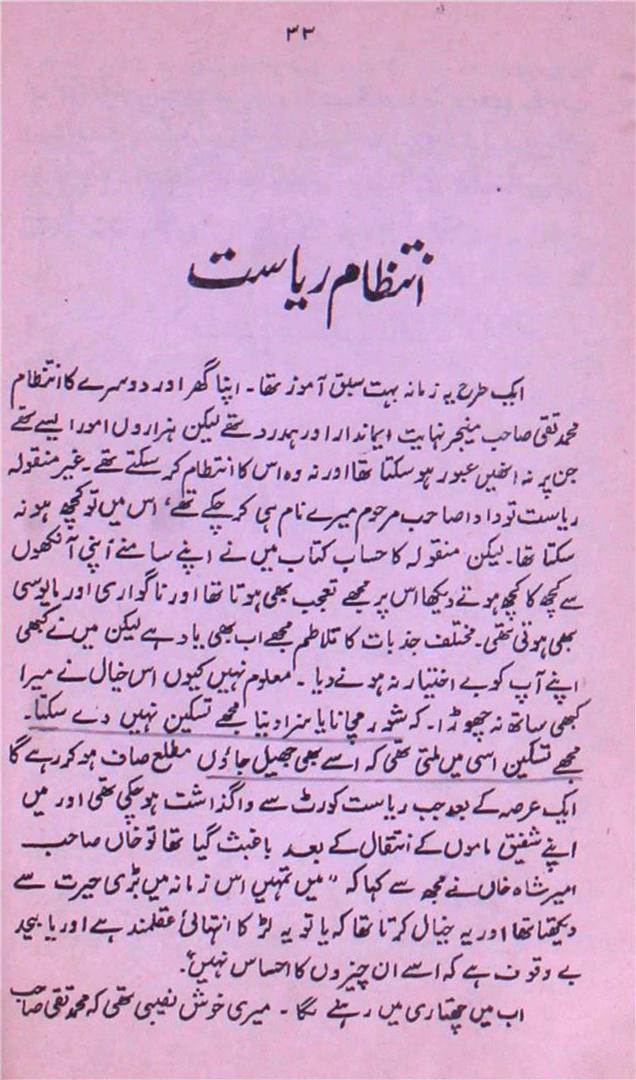 ۳۳
انتظام ریاست
ایک طرح یہ زمانہ بہت سبق آموز تھا۔ اپنا گھر اور دوسرے کا انتظام
محمد تقی صاحب منیجر نہایت ایماندار اور ہمدرد تھے لیکن ہزاروں امور ایسے تھے
جن پر نہ انھیں عبور ہو سکتا تھا اور نہ وہ اس کا انتظام کر سکتے تھے۔ غیر منقولہ
ریاست تو دادا صاحب مرحوم میرے نام ہی کر چکے تھے، اس میں تو کچھ ہو نہ
سکتا تھا۔ لیکن منقولہ کا حساب کتاب میں نے اپنے سامنے اپنی آنکھوں
سے کچھ کا کچھ ہوتے دیکھا اس پر مجھے تعجب بھی ہوتا تھا اور ناگواری اور مایوسی
بھی ہوتی تھی۔ مختلف جذبات کا تلاطم مجھے اب بھی یاد ہے لیکن میں نے کبھی
اپنے آپ کو بے اختیار نہ ہونے دیا۔ معلوم نہیں کیوں اس خیال نے میرا
کبھی ساتھ نہ چھوڑا۔ کہ شور مچانا یا سزا دینا مجھے تسکین نہیں دے سکتا۔
مجھے تسکین اسی میں ملتی تھی کہ اسے بھی جھیل جاؤں مطلع صاف ہو کر رہے گا
ایک عرصہ کے بعد جب ریاست کورٹ سے واگذاشت ہو چکی تھی اور میں
اپنے شفیق ماموں کے انتقال کے بعد باغپت گیا تھا تو خاں صاحب
امیر شاہ خاں نے مجھ سے کہا کہ "میں تمہیں اس زمانہ میں بڑی حیرت سے
دیکھتا تھا اور یہ خیال کرتا تھا کہ یا تو یہ لڑکا انتہائی عقلمند ہے اور یا بیحد
بے وقوف ہے کہ اسے ان چیزوں کا احساس نہیں"۔
اب میں چھتاری میں رہنے لگا۔ میری خوش نصیبی تھی کہ محمد تقی صاحب